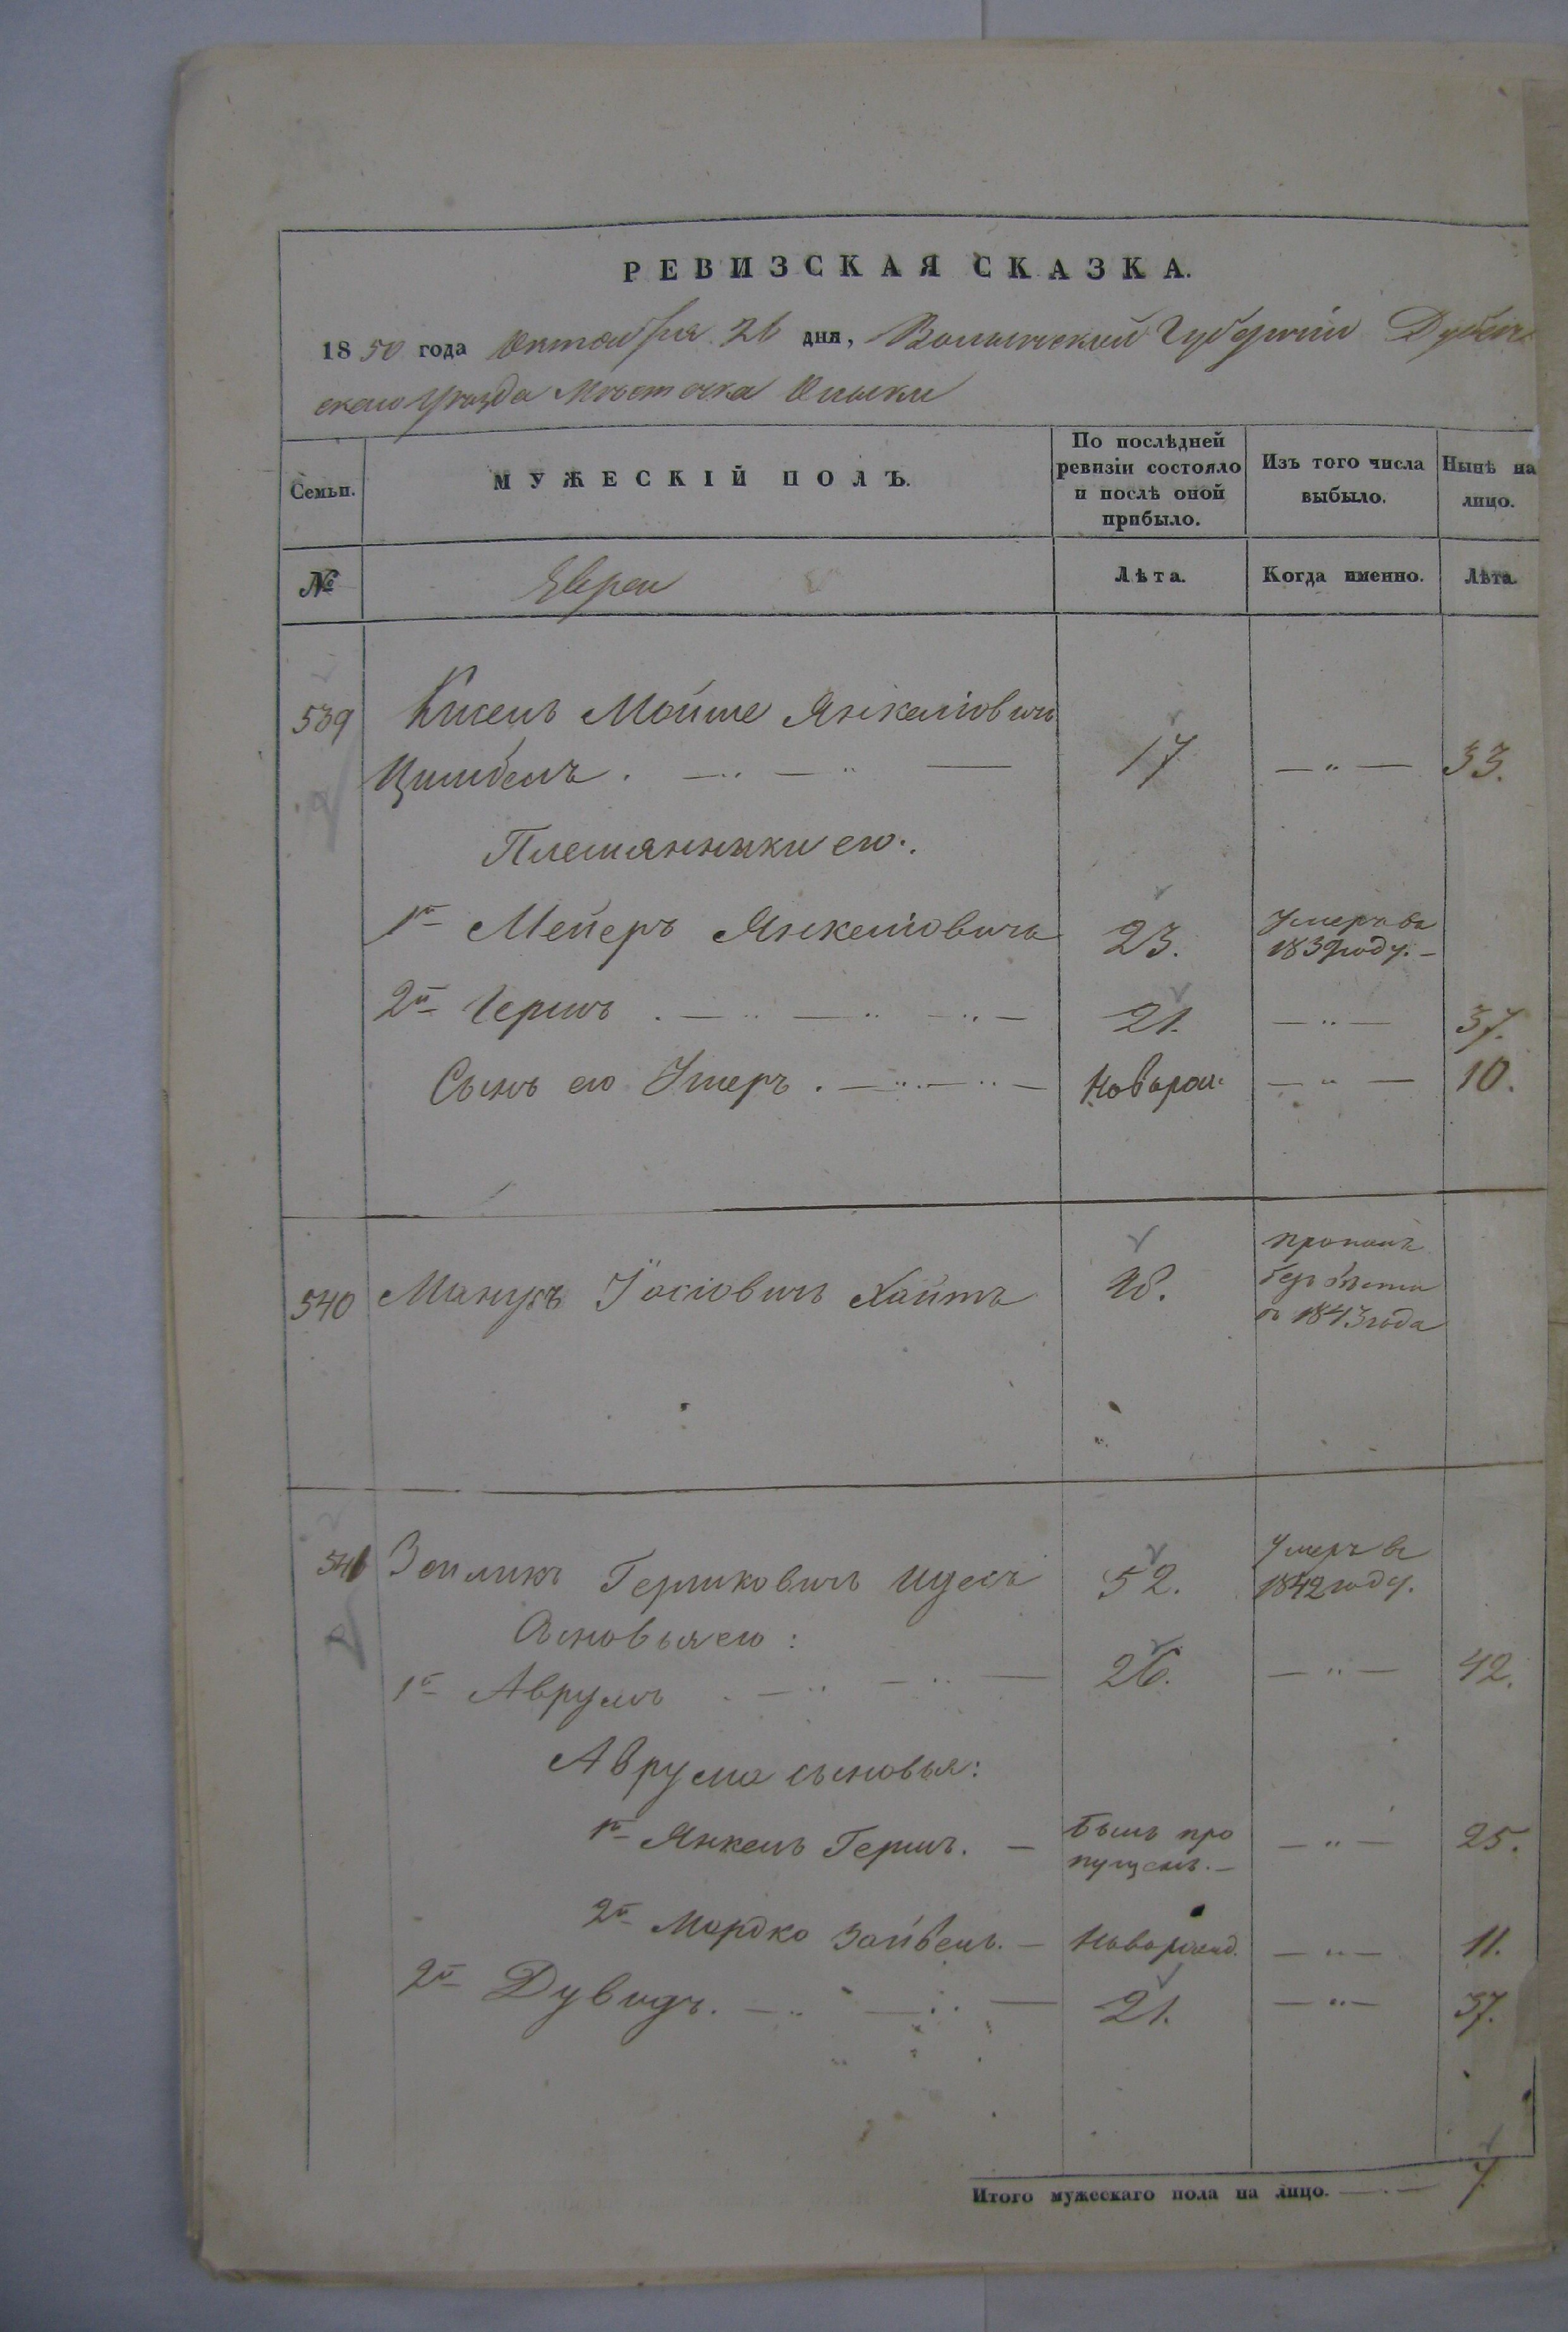 РЕВИЗСКАЯ СКАЗКА.
1850 года Октября 26 дня, Волынской Губерніи Дубен
скаго Уѣзда Мѣстечка Олыки
Семьи.
МУЖЕСКІЙ ПОЛЪ.
По послѣдней ревизіи состояло и послѣ оной прибыло.
Изъ того числа выбыло.
Нынѣ на лицо.
№
Евреи
Лѣта.
Когда именно.
Лѣта.
539 Кисель Мойше Янкеліовичъ
Цимбелъ . — " — " — 17 — " — 33.
Племянники его:
1й Мейеръ Янкеліовичъ 23. Умеръ въ
1839 году. —
2й Гершъ . — " — " — " — 21. — " — 37.
Сынъ его Умеръ . — " — " — Новорож. — " — 10.
540 Манусъ Іосіовичъ Хаитъ 26. пропалъ
безъ вѣсти
въ 1843 года
541 Зейликъ Гершковичъ Идесъ 52. Умеръ въ
1842 году.
Сыновья его:
1й Аврумъ . — " — " — 26. — " — 42.
Аврума сыновья:
1й Янкель Гершъ. — былъ про
пущенъ. — — " — 25.
2й Мордко Зайвель. — Новорожд. — " — 11.
2й Дувидъ. — " — " — 21. — " — 37.
Итого мужескаго пола на лицо. — " — 7